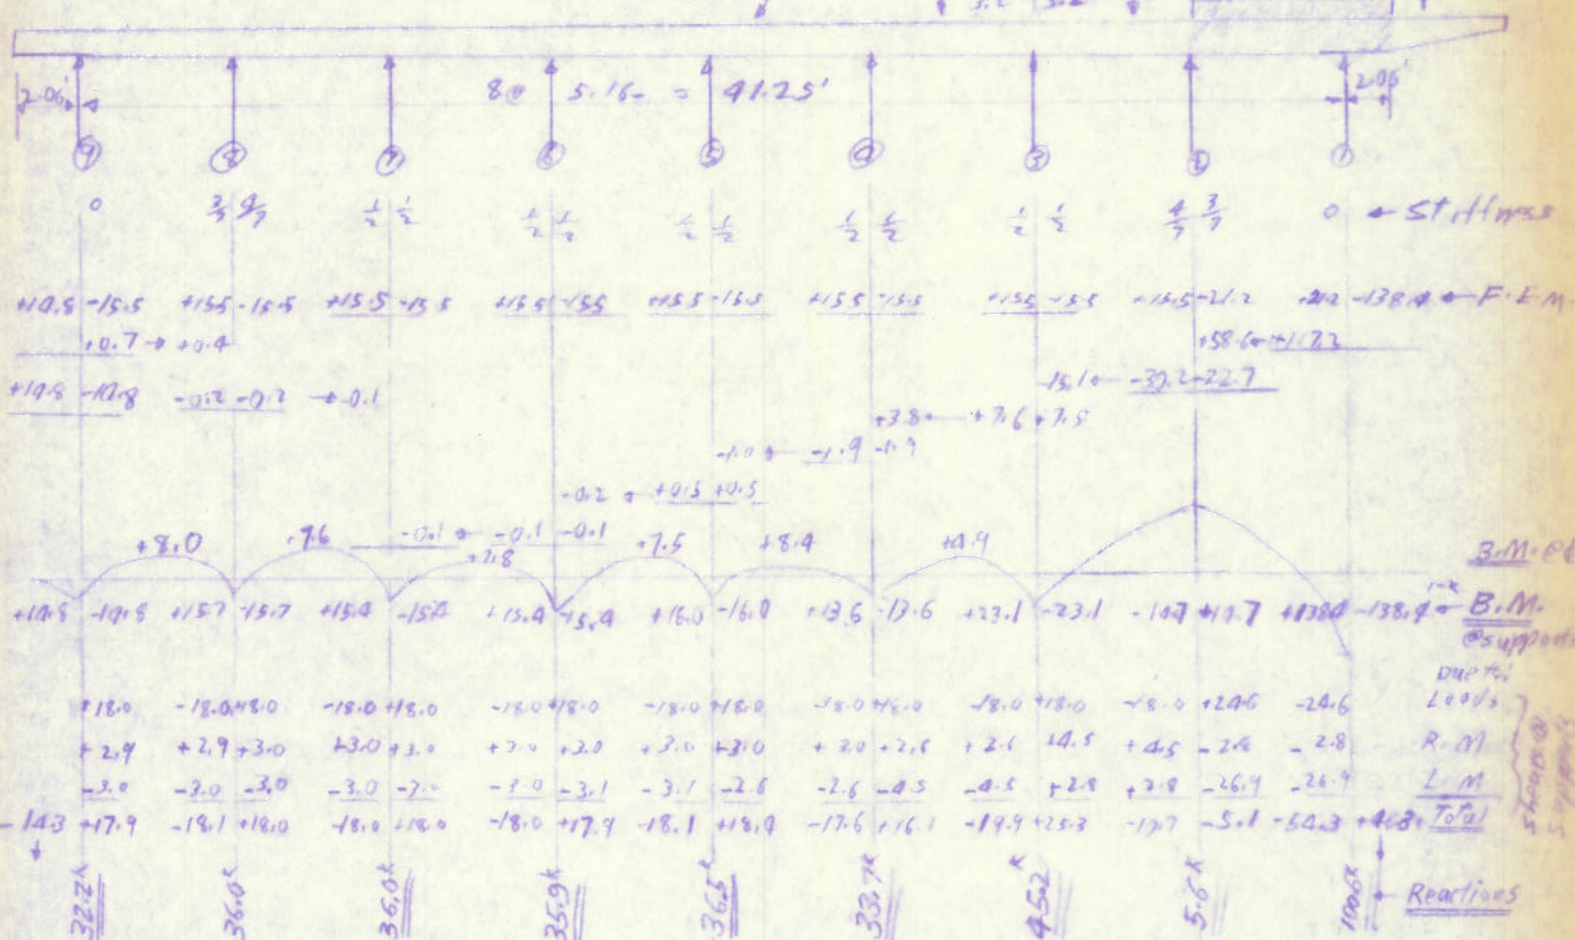 2.06' 8@ 5.16- = 41.25' 2.06'
9 8 7 6 5 4 3 2 1
0 3/7 4/7 1/2 1/2 1/2 1/2 1/2 1/2 1/2 1/2 1/2 1/2 4/7 3/7 0 ← Stiffness
+14.8 -15.5 +15.5 -15.5 +15.5 -15.5 +15.5 -15.5 +15.5 -15.5 +15.5 -15.5 +15.5 -15.5 +15.5 -21.2 +21.2 -138.4 ← F.E.M.
+0.7 → +0.4 +58.6 ← +117.2
-15.1 ← -30.2 -22.7
+14.8 -14.8 -0.2 -0.2 → -0.1
+3.8 ← +7.6 +7.5
-1.0 ← -1.9 -1.9
-0.2 ← +0.5 +0.5
+8.0 7.6 -0.1 ← -0.1 -0.1 +7.5 +8.4 +4.9
+7.8 B.M. @
+14.8 -14.8 +15.7 -15.7 +15.4 -15.4 +15.4 -15.4 +16.0 -16.0 +13.6 -13.6 +23.1 -23.1 -14.7 +14.7 +138.4 -138.4 ← B.M.
@support
Due to:
+18.0 -18.0 +18.0 -18.0 +18.0 -18.0 +18.0 -18.0 +18.0 -18.0 +18.0 -18.0 +18.0 -18.0 +24.6 -24.6 Loads
+2.9 +2.9 +3.0 +3.0 +3.0 +3.0 +3.0 +3.0 +3.0 +3.0 +2.6 +2.6 +4.5 +4.5 -2.8 -2.8 R.M
-3.0 -3.0 -3.0 -3.0 -3.0 -3.0 -3.1 -3.1 -2.6 -2.6 -4.5 -4.5 +2.8 +2.8 -26.9 -26.9 L.M
-14.3 +17.9 -18.1 +18.0 -18.0 +18.0 -18.0 +17.9 -18.1 +18.4 -17.6 +16.1 -19.9 +25.3 -10.7 -5.1 -54.3 +46.3 Total
Shears @
supports
32.2k 36.0k 36.0k 35.9k 36.5k 33.7k 45.2k 5.6k 100.6k ← Reactions